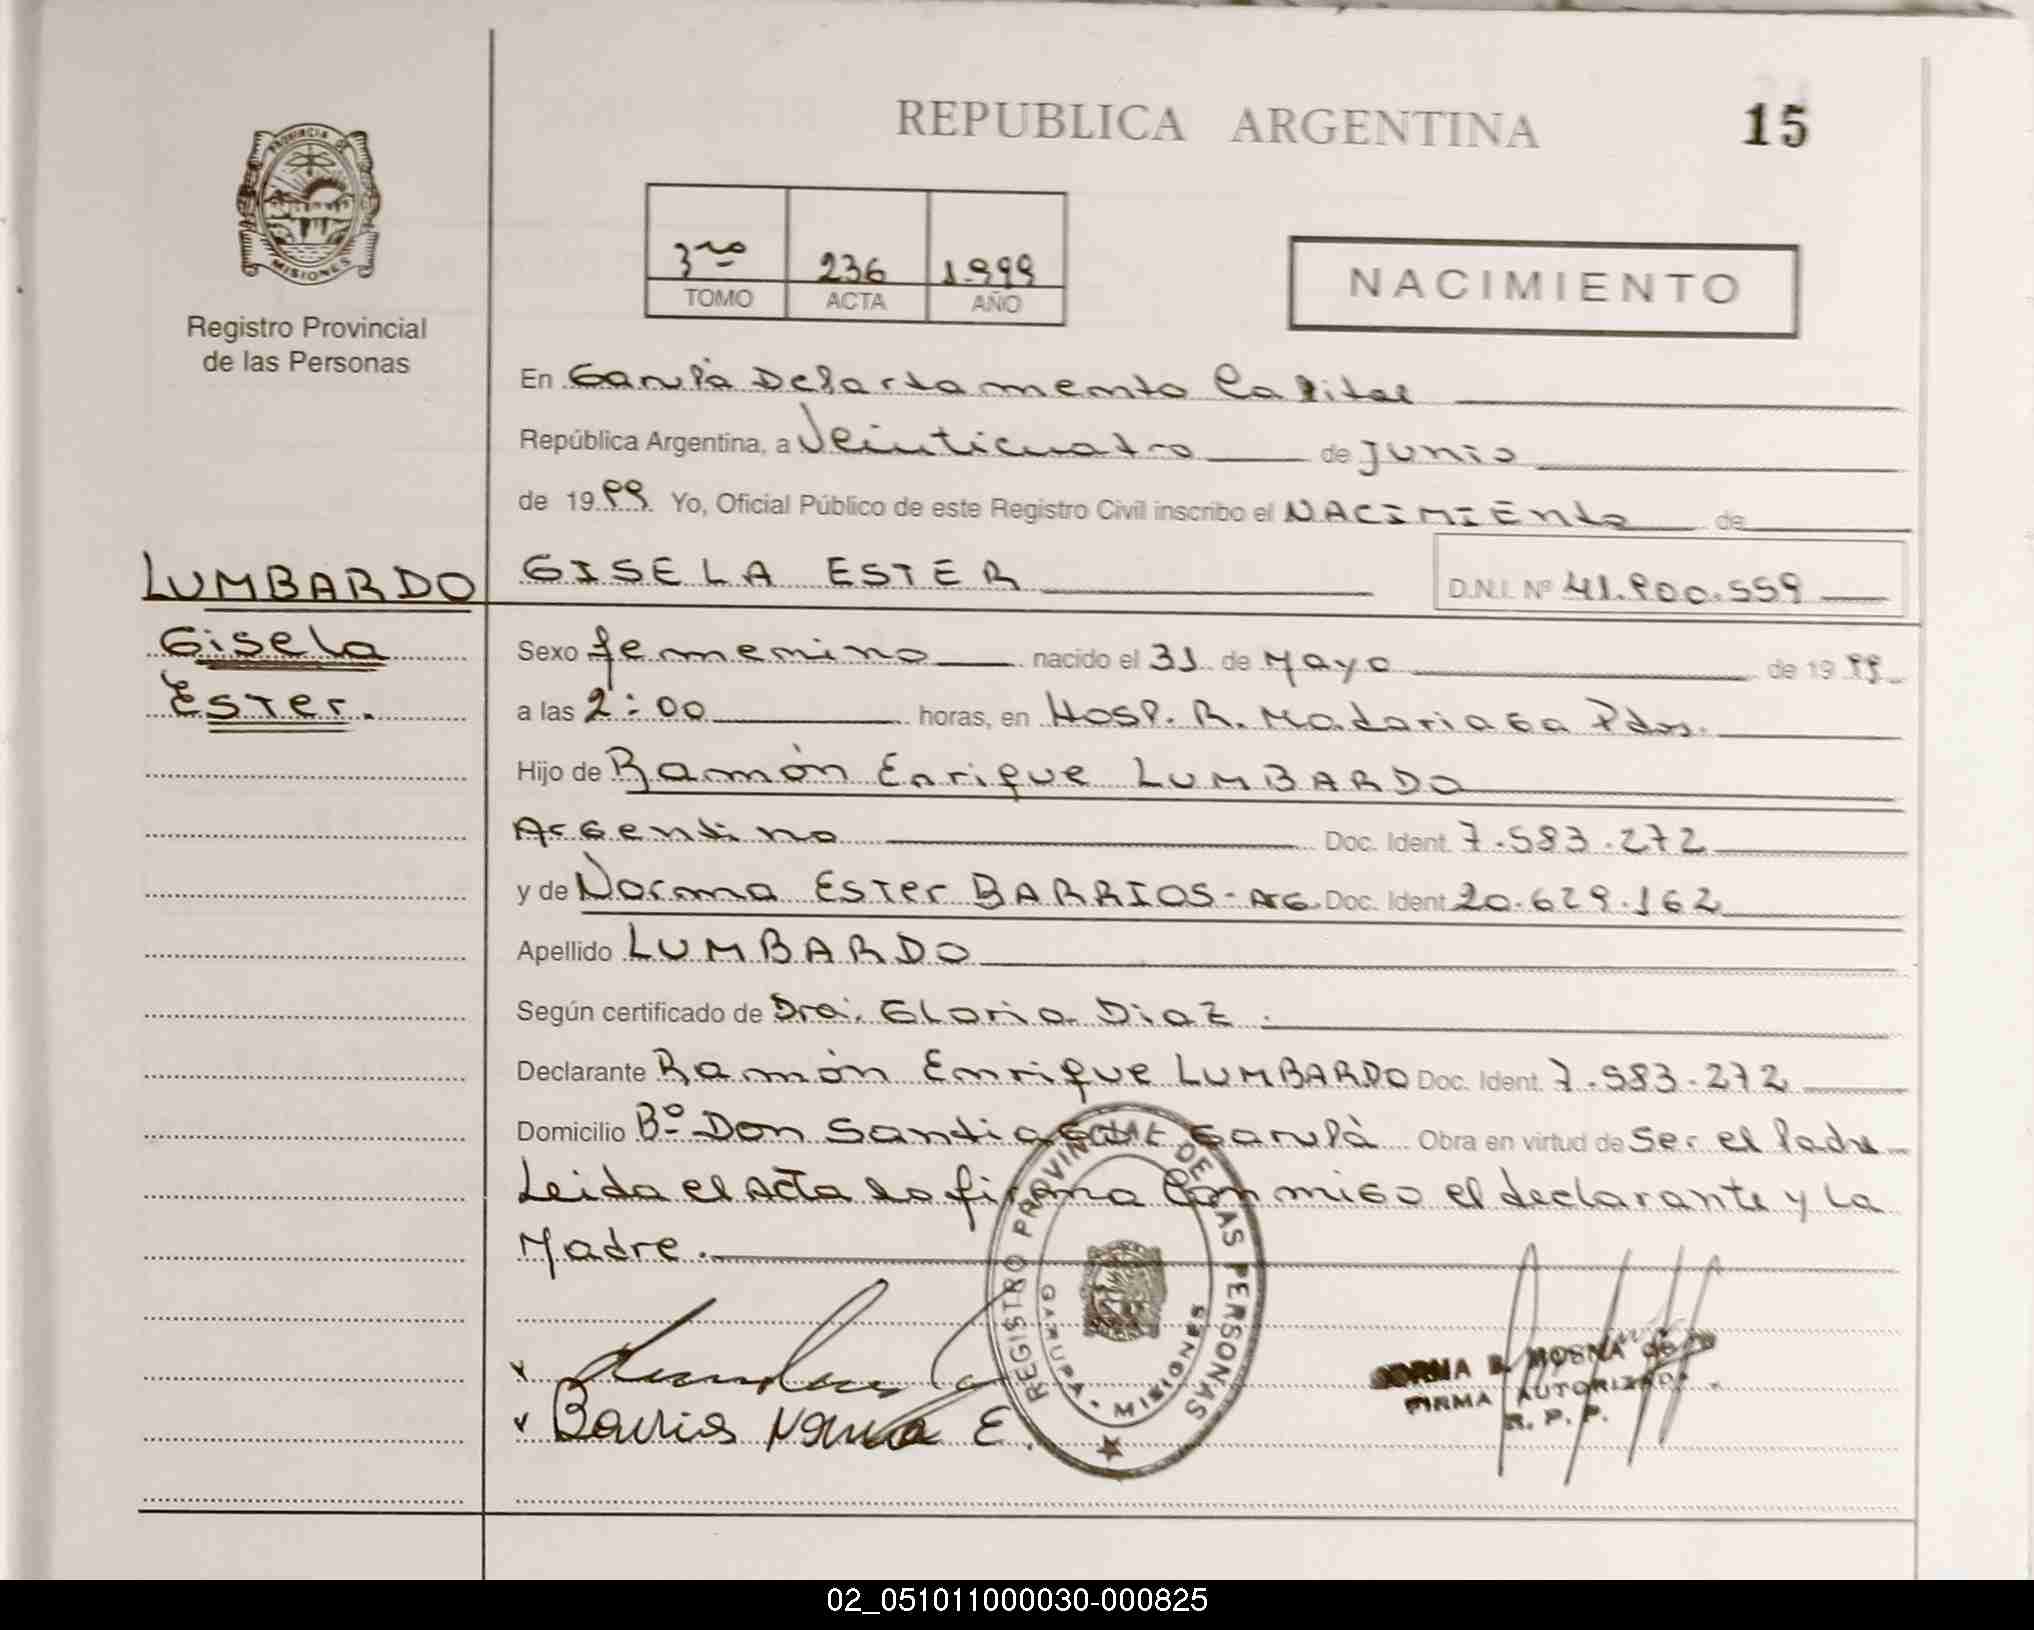 REPUBLICA ARGENTINA
15
PROVINCIA DE
MISIONES
Registro Provincial
de las Personas
3ro 236 1.999
TOMO ACTA AÑO
NACIMIENTO
En Garupá Departamento Capital
República Argentina, a Veinticuatro de Junio
de 1999 Yo, Oficial Público de este Registro Civil inscribo el NACIMIENto de
LUMBARDO GISELA ESTER D.N.I. Nº 41.900.559
Gisela Sexo femenino nacido el 31 de Mayo de 1999
Ester. a las 2:00 horas, en Hosp. R. Madariaga Pdas.
Hijo de Ramón Enrique LUMBARDO
Argentino Doc. Ident. 7.583.272
y de Norma Ester BARRIOS - Arg. Doc. Ident. 20.629.162
Apellido LUMBARDO
Según certificado de Dra. Gloria Diaz.
Declarante Ramón Enrique LUMBARDO Doc. Ident. 7.583.272
Domicilio Bº Don Santiago Garupá Obra en virtud de Ser el Padre
Leida el Acta la firma Conmigo el declarante y La
Madre.
REGISTRO PROVINCIAL DE LAS PERSONAS
GARUPA · MISIONES
x
x Barrios Norma E.
B. MOSNA de
FIRMA AUTORIZADA
R. P. P.
02_051011000030-000825